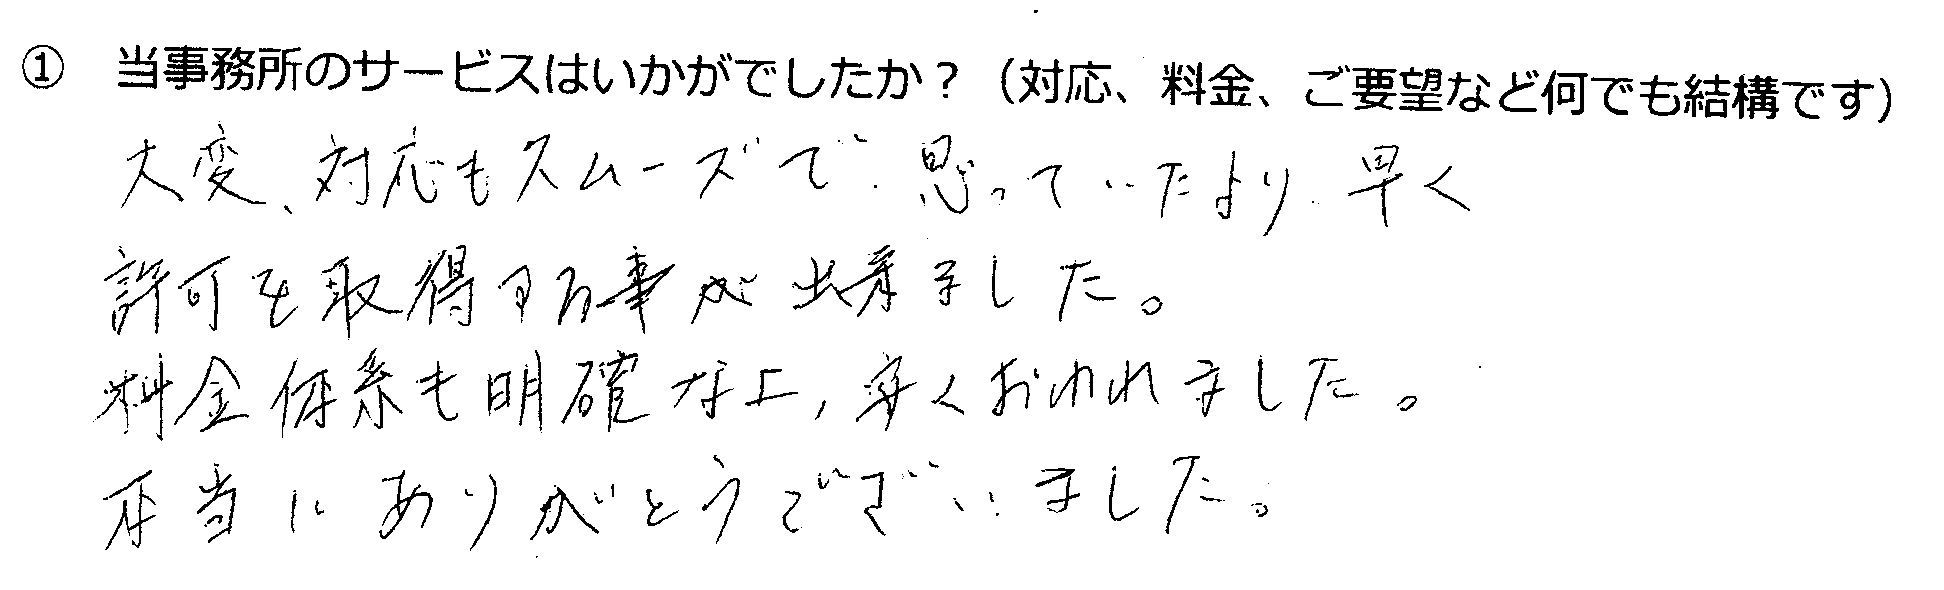 ① 当事務所のサービスはいかがでしたか？（対応、料金、ご要望など何でも結構です）
大変、対応もスムーズで、思っていたより、早く
許可を取得する事が出来ました。
料金体系も明確な上、安くおわれました。
本当にありがとうございました。